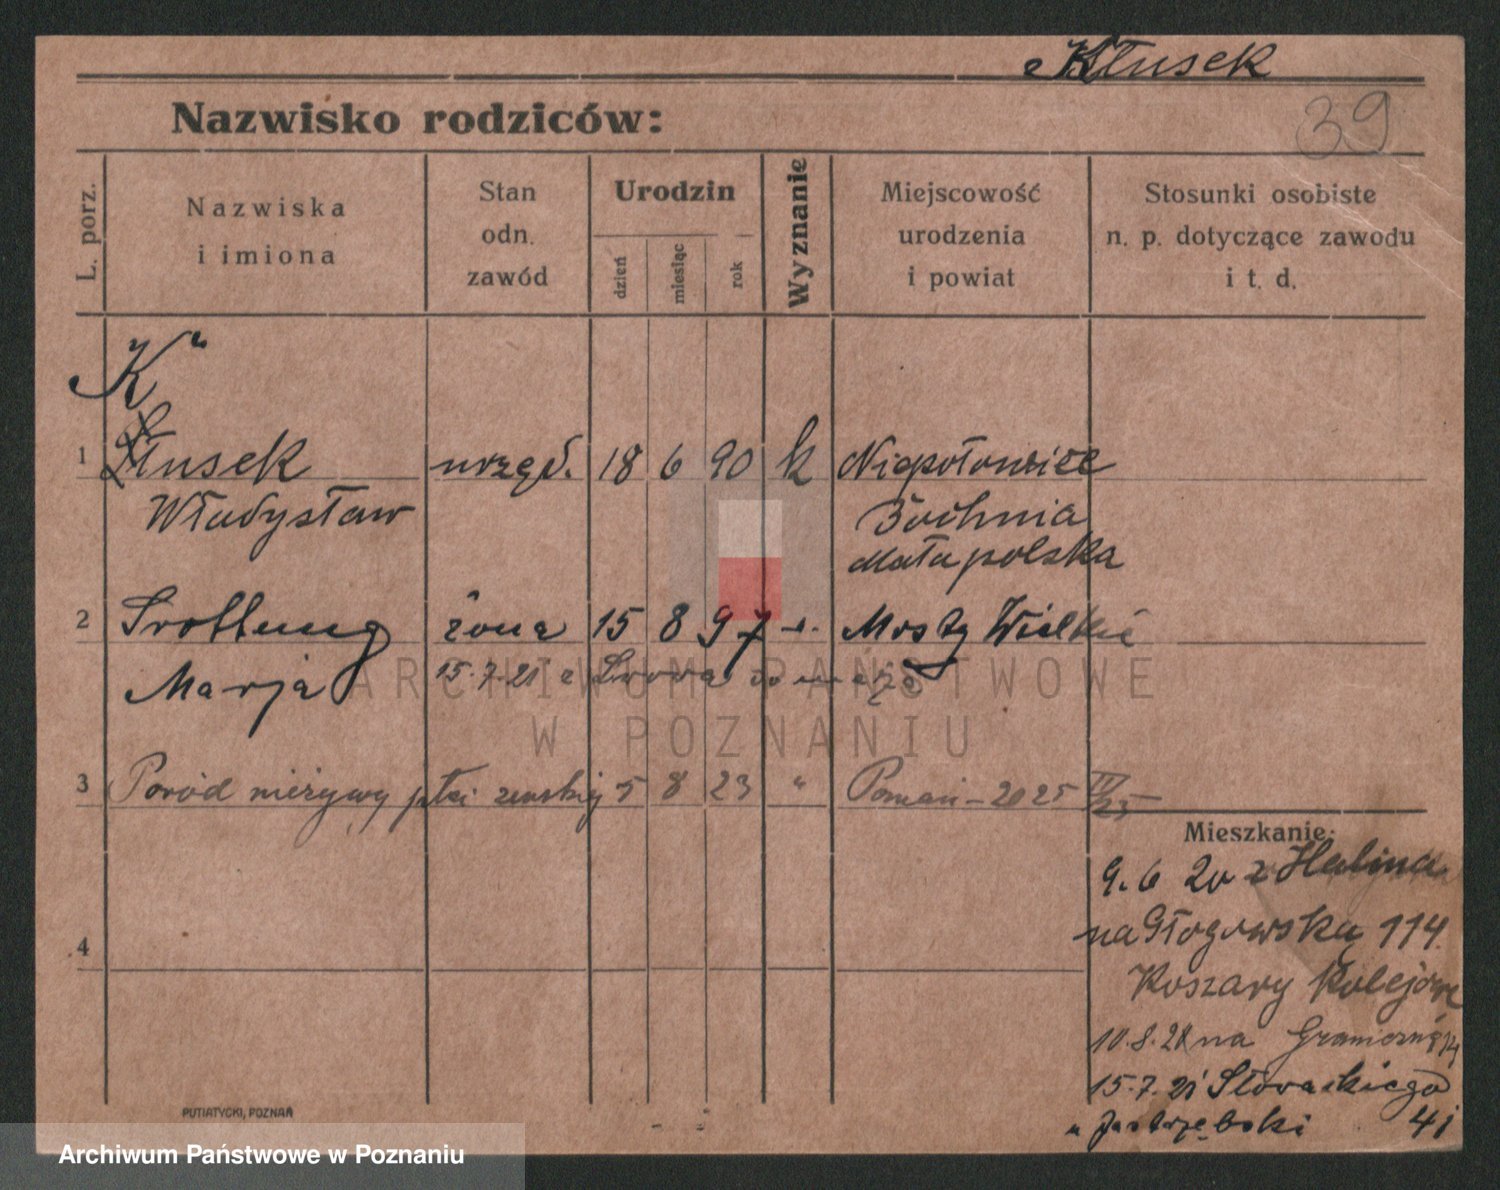 Kłusek
39
Nazwisko rodziców:
L. porz.
Nazwiska
i imiona
Stan
odn.
zawód
Urodzin
dzień
miesiąc
rok
Wyznanie
Miejscowość
urodzenia
i powiat
Stosunki osobiste
n. p. dotyczące zawodu
i t. d.
K
1 Kłusek urzęd. 18 6 90 k Niepołomice
Władysław Bochnia
Małopolska
2 żona 15 8 97 Mosty Wielkie
Marja 15.7.21 z Lwowa do męża
3 Poród nieżywy płci żeńskiej 5 8 23 " Poznań - 2025 IV/25
Mieszkanie:
9.6 20 z Halina
na Głogowską 114.
4
Koszary Kolejowe
10.8.20 na Graniczną
15.7.21 Słowackiego
u Jastrzębski 41
PUTIATYCKI, POZNAŃ
ARCHIWUM PAŃSTWOWE
W POZNANIU
Archiwum Państwowe w Poznaniu